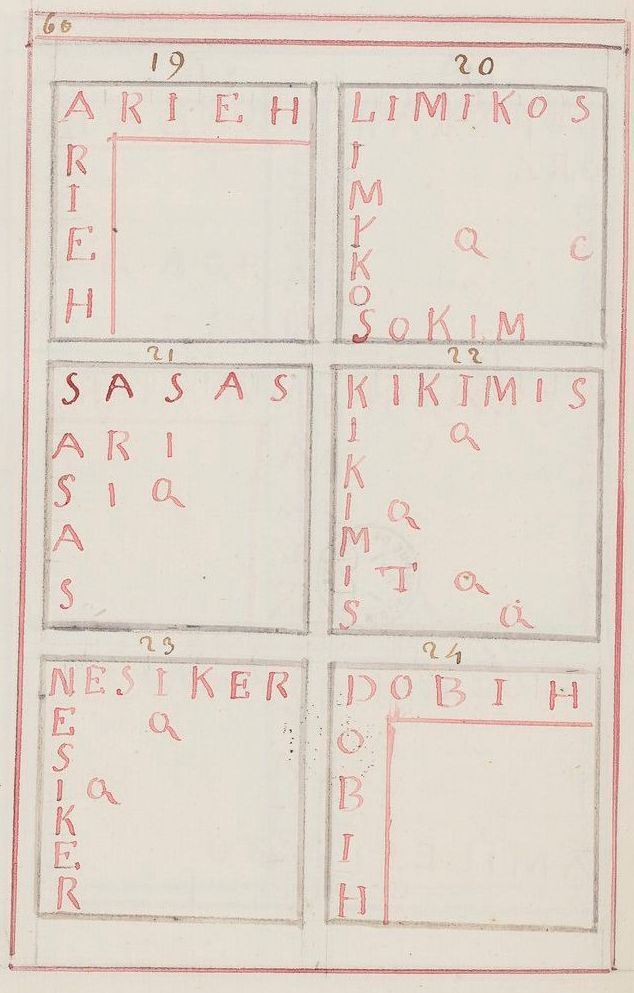 60
19
A R I E H
R
I
E
H
20
L I M I K O S
I
M
Y
K
K
O
S O K I M
a c
21
S A S A S
A R I
S I a
A
S
22
K I K I M I S
I a
K
I a
M
I T a
S a
23
N E S I K E R
E a
S
I a
K
E
R
24
D O B I H
O
B
I
H